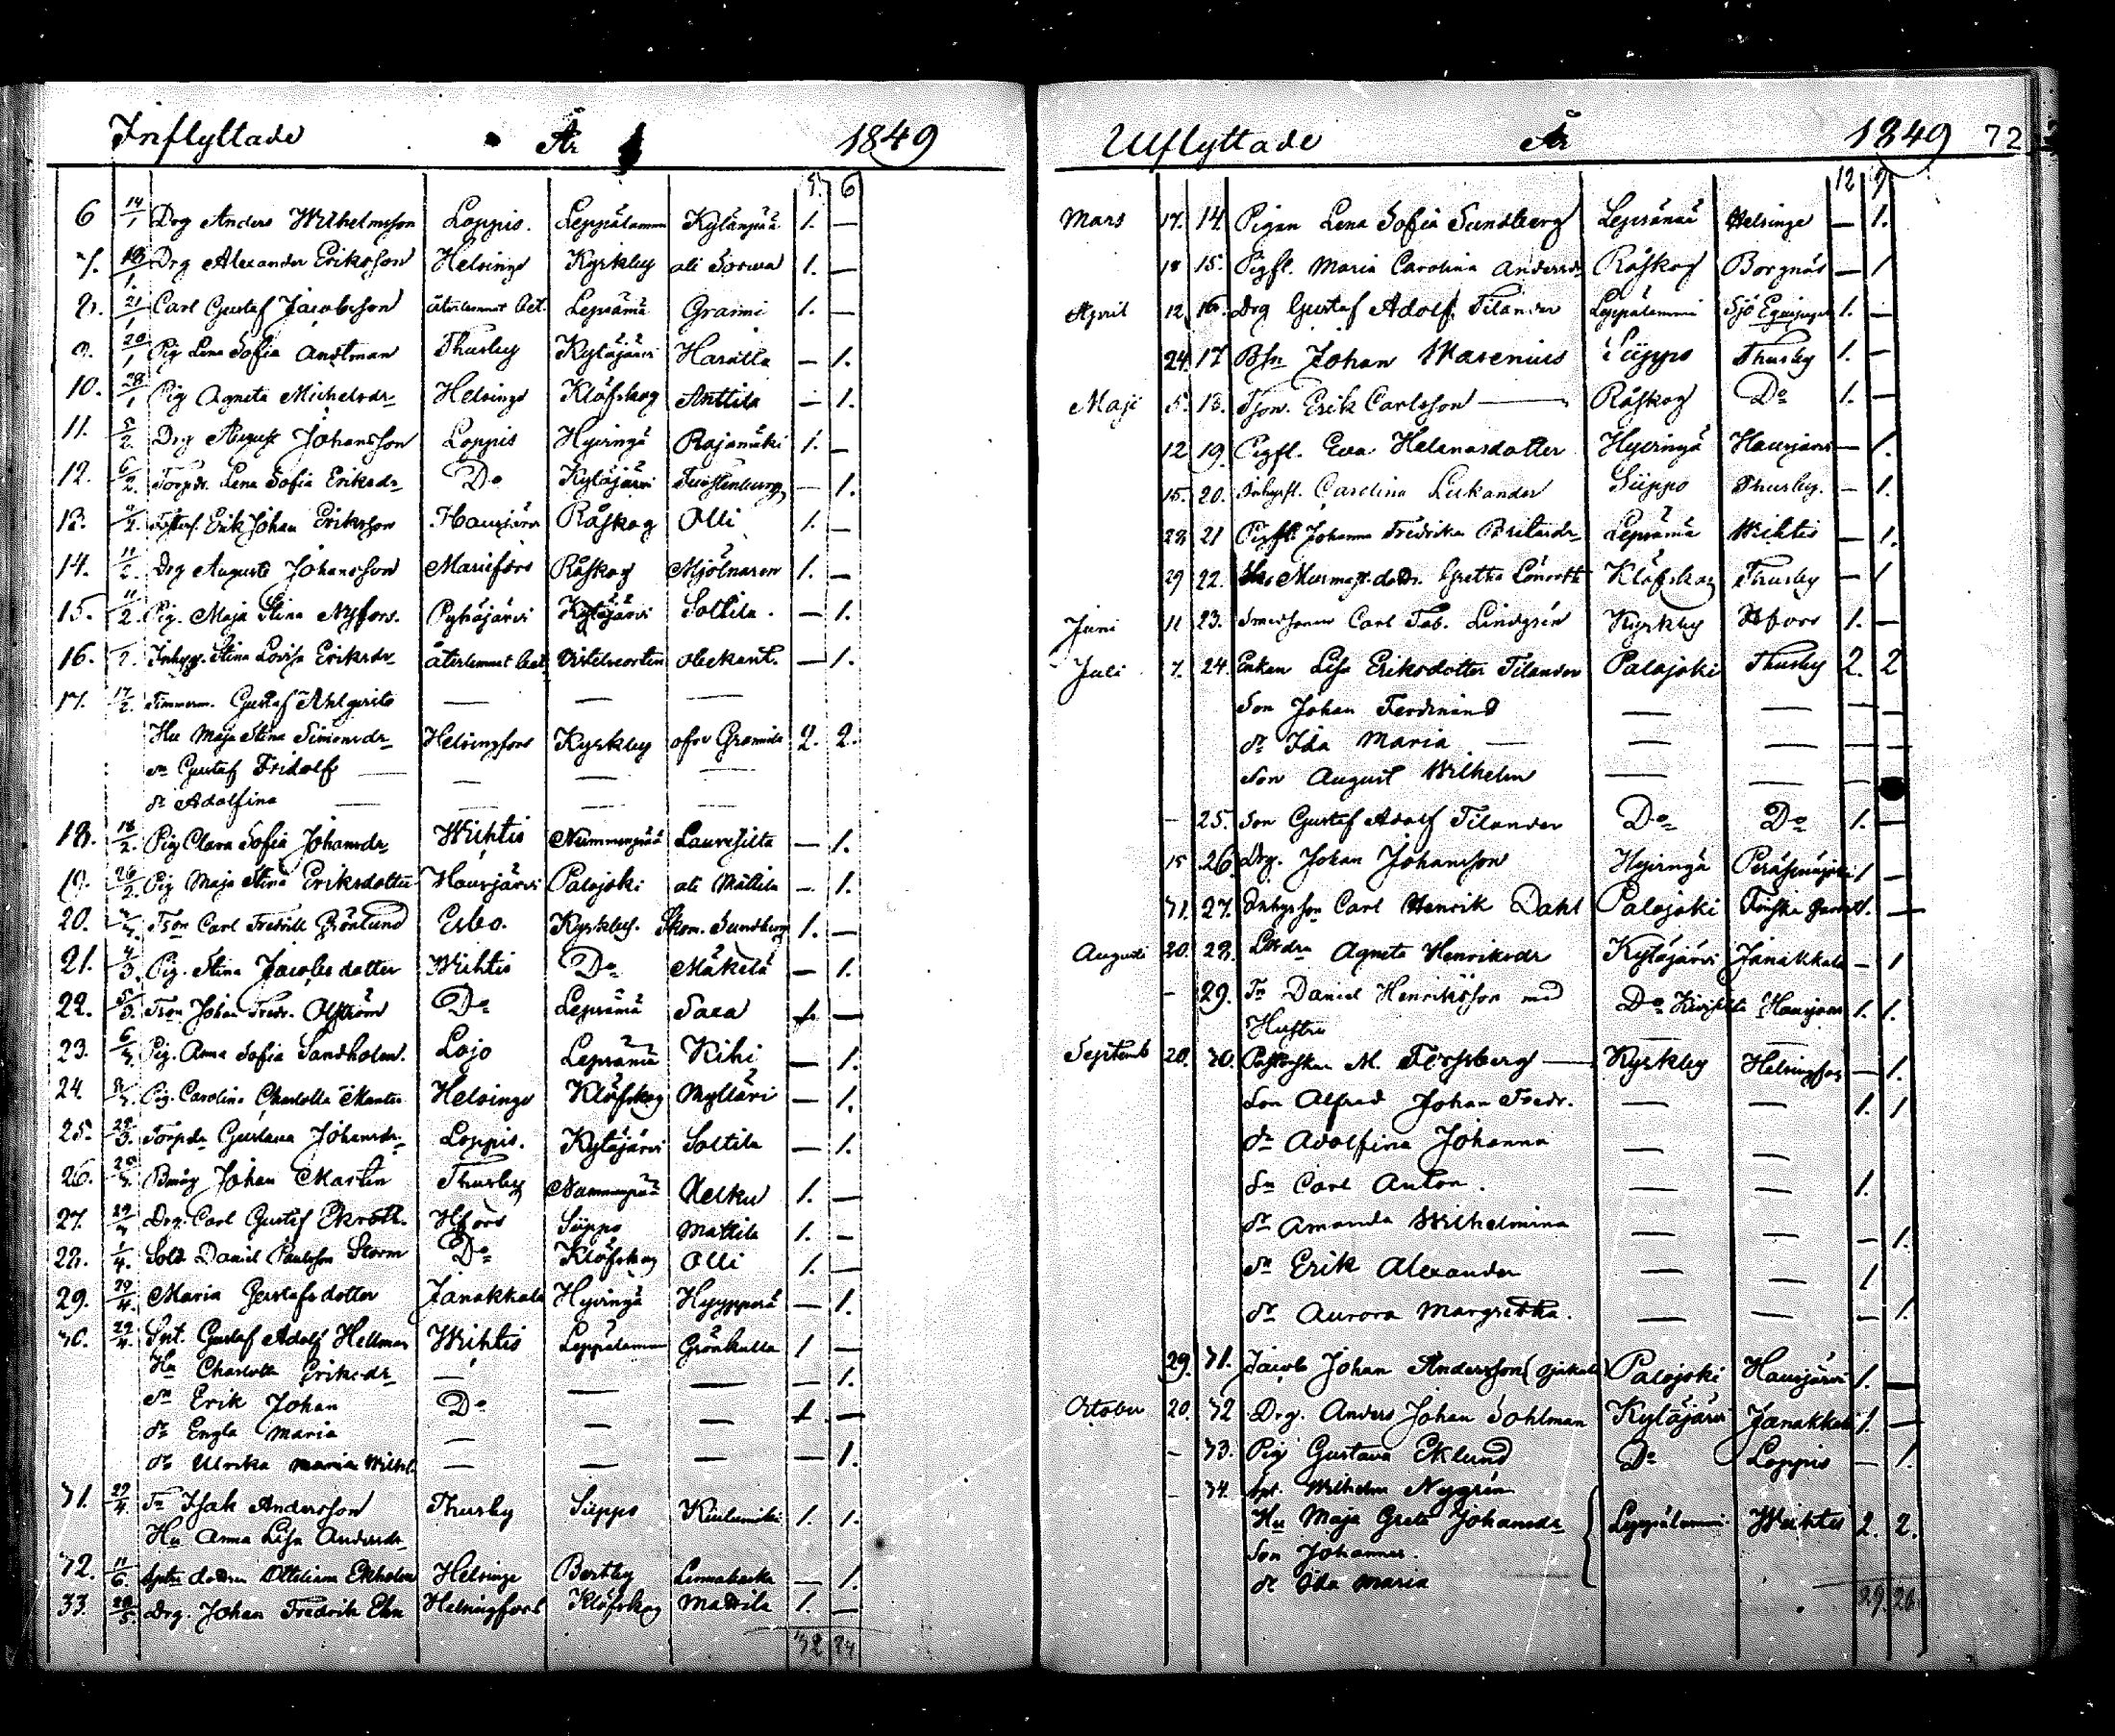 Inflyttade År 1849
5. 6
6 14/1 Drg Anders Wilhelmsson Loppis. Leppälammi Kylänpää 1. —
7. 18/1. Drg Alexander Eriksson Helsinge Kyrkby ali Sorwa 1. —
8. 21/1 Carl Gustaf Jacobsson återlemnat bet. Lepsämä Graimi 1. —
9. 20/1 Pig Lena Sofia Anstman Thusby Kytäjärvi Haratla — 1.
10. 28/1 Pig Agneta Michelsdr Helsinge Klöfskog Anttila — 1.
11. 5/2. Drg August Johansson Loppis Hyvingä Rajamäki 1. —
12. 6/2. Torpdr. Lena Sofia Eriksdr Do Kytäjärvi — 1.
13. 4/2. Erik Johan Eriksson Hausjärvi Råskog Olli 1. —
14. 11/2. Drg August Johansson Mariefors Råskog Mjölnaren 1. —
15. 11/2. Pig. Maja Stina Nyfors. Pyhäjärvi Kytäjärvi Soltila. — 1.
16. /2. Inhys. Stina Lovisa Eriksdr återlemnat bet. obekant. — 1.
17. 17/2. Timmerm. Gustaf Ahlqvist — — —
Hu Maja Stina Simonsdr Helsingfors Kyrkby ofvr Gramila 2. 2.
sn Gustaf Fridolf — — — —
dr Adolfina — — — —
18. 18/2. Pig Clara Sofia Johansdr Wichtis Nummenpää Laurosilta — 1.
19. 26/2. Pig Maja Stina Eriksdotter Hausjärvi Palojoki ali Mattila — 1.
20. 2/3. Tson Carl Fredrik Grönlund Esbo. Kyrkby. Skom. Sundberg 1. —
21. 4/3. Pig. Stina Jacobsdotter Wichtis Do Mäkelä — 1.
22. 5/3. Tson Johan Fredr. Ahlström Do Lepsämä Saxa 1. —
23. 6/3. Pig. Anna Sofia Sandholm. Lojo Lepsämä Kihi — 1.
24. 8/3. Pig. Carolina Charlotta Manter Helsinge Klöfskog Mylläri — 1.
25. 28/3. Torpdr Gustava Johansdr Loppis. Kytäjärvi Soltila — 1.
26. 28/3. Bmåg Johan Martin Thusby Nummenpää Uotku 1. —
27. 29/3 Drg. Carl Gustaf Ekroth. Hfors Siippo Mattila 1. —
28. 1/4. Sold. Daniel Paulsson Storm Do Klöfskog Olli 1. —
29. 29/4. Maria Gustafsdotter Janakkala Hyvingä Hyypperä — 1.
30. 29/4. Spt. Gustaf Adolf Hellman Wichtis Leppälammi Grönkulla 1 —
Hu Charlotta Eriksdr — — — — 1.
sn Erik Johan Do — — 1. —
dr Engla Maria —
dr Ulrika Maria Wilhel. — — — — 1.
31. 29/4. Tn Isak Andersson Thusby Siippo Kiulumäki 1. 1.
Hu Anna Lisa Andersdr
32. 11/6. Ottiliana Ekholm Helsinge Bertby Linnabacka — 1.
33. 28/5. Drg. Johan Fredrik Ehn Helsingfors Klöfskog Mattila 1. —
32 24
Utflyttade År 1849 72
12 9
Mars 17. 14. Pigan Lena Sofia Sundberg Lepsämä Helsinge — 1.
18 15. Pigfl. Maria Carolina Andersdr Råskog Borgnäs — 1
April 12 16. Drg Gustaf Adolf Tilander Leppälammi Sjö Equipaget 1. —
24. 17 Bsn Johan Wasenius Siippo Thusby 1. —
Maji 5. 18. Tson. Erik Carlsson — Råskog Do 1. —
12 19. Pigfl. Eva Helenasdotter Hyvingä Hausjärvi — 1.
15. 20. Inhysfl. Carolina Lukander Siippo Thusby. — 1.
28 21 Pigfl. Johanna Fredrika Britasdr Lepsämä Wichtis — 1.
29 22. Gretha Lönroth Klöfskog Thusby — 1
Juni 11 23. Smedsonen Carl Tob. Lindgrén Kyrkby Hfors 1. —
Juli 7. 24. Enkan Lisa Eriksdotter Tilander Palojoki Thusby 2. 2
Son Johan Ferdinand — — — —
dr Ida Maria — — — — —
Son August Wilhelm — — —
— 25. Son Gustaf Adolf Tilander Do Do 1. —
15 26 Drg. Johan Johansson Hyvingä Peräseinäjoki 1 —
31. 27. Inhysson Carl Henrik Dahl Palojoki Finska Gardet 1. —
Augusti 20. 28. Agneta Henriksdr Kytäjärvi Janakkala — 1
— 29. Tn Daniel Henriksson med Do Hausjärvi 1. 1.
Hustru — —
Septemb 20. 30. M. Forsberg — Kyrkby Helsingfors — 1.
Son Alfred Johan Fredr. — — 1. 1
dr Adolfina Johanna — —
Sn Carl Anton. — — 1.
dr Amanda Wilhelmina — — — 1.
Sn Erik Alexander — — 1
dr Aurora Margretha. — — — 1.
29. 31. Jacob Johan Andersson Palojoki Hausjärvi 1. —
October 20. 32 Drg. Anders Johan Sohlman Kytäjärvi Janakkala 1. —
— 33. Pig Gustava Eklund Do Loppis — 1.
— 34. Spt. Wilhelm Nygrén
Hu Maja Greta Johansdr Leppälammi Wichtis 2. 2.
Son Johannes.
dr Ida Maria
29. 26.